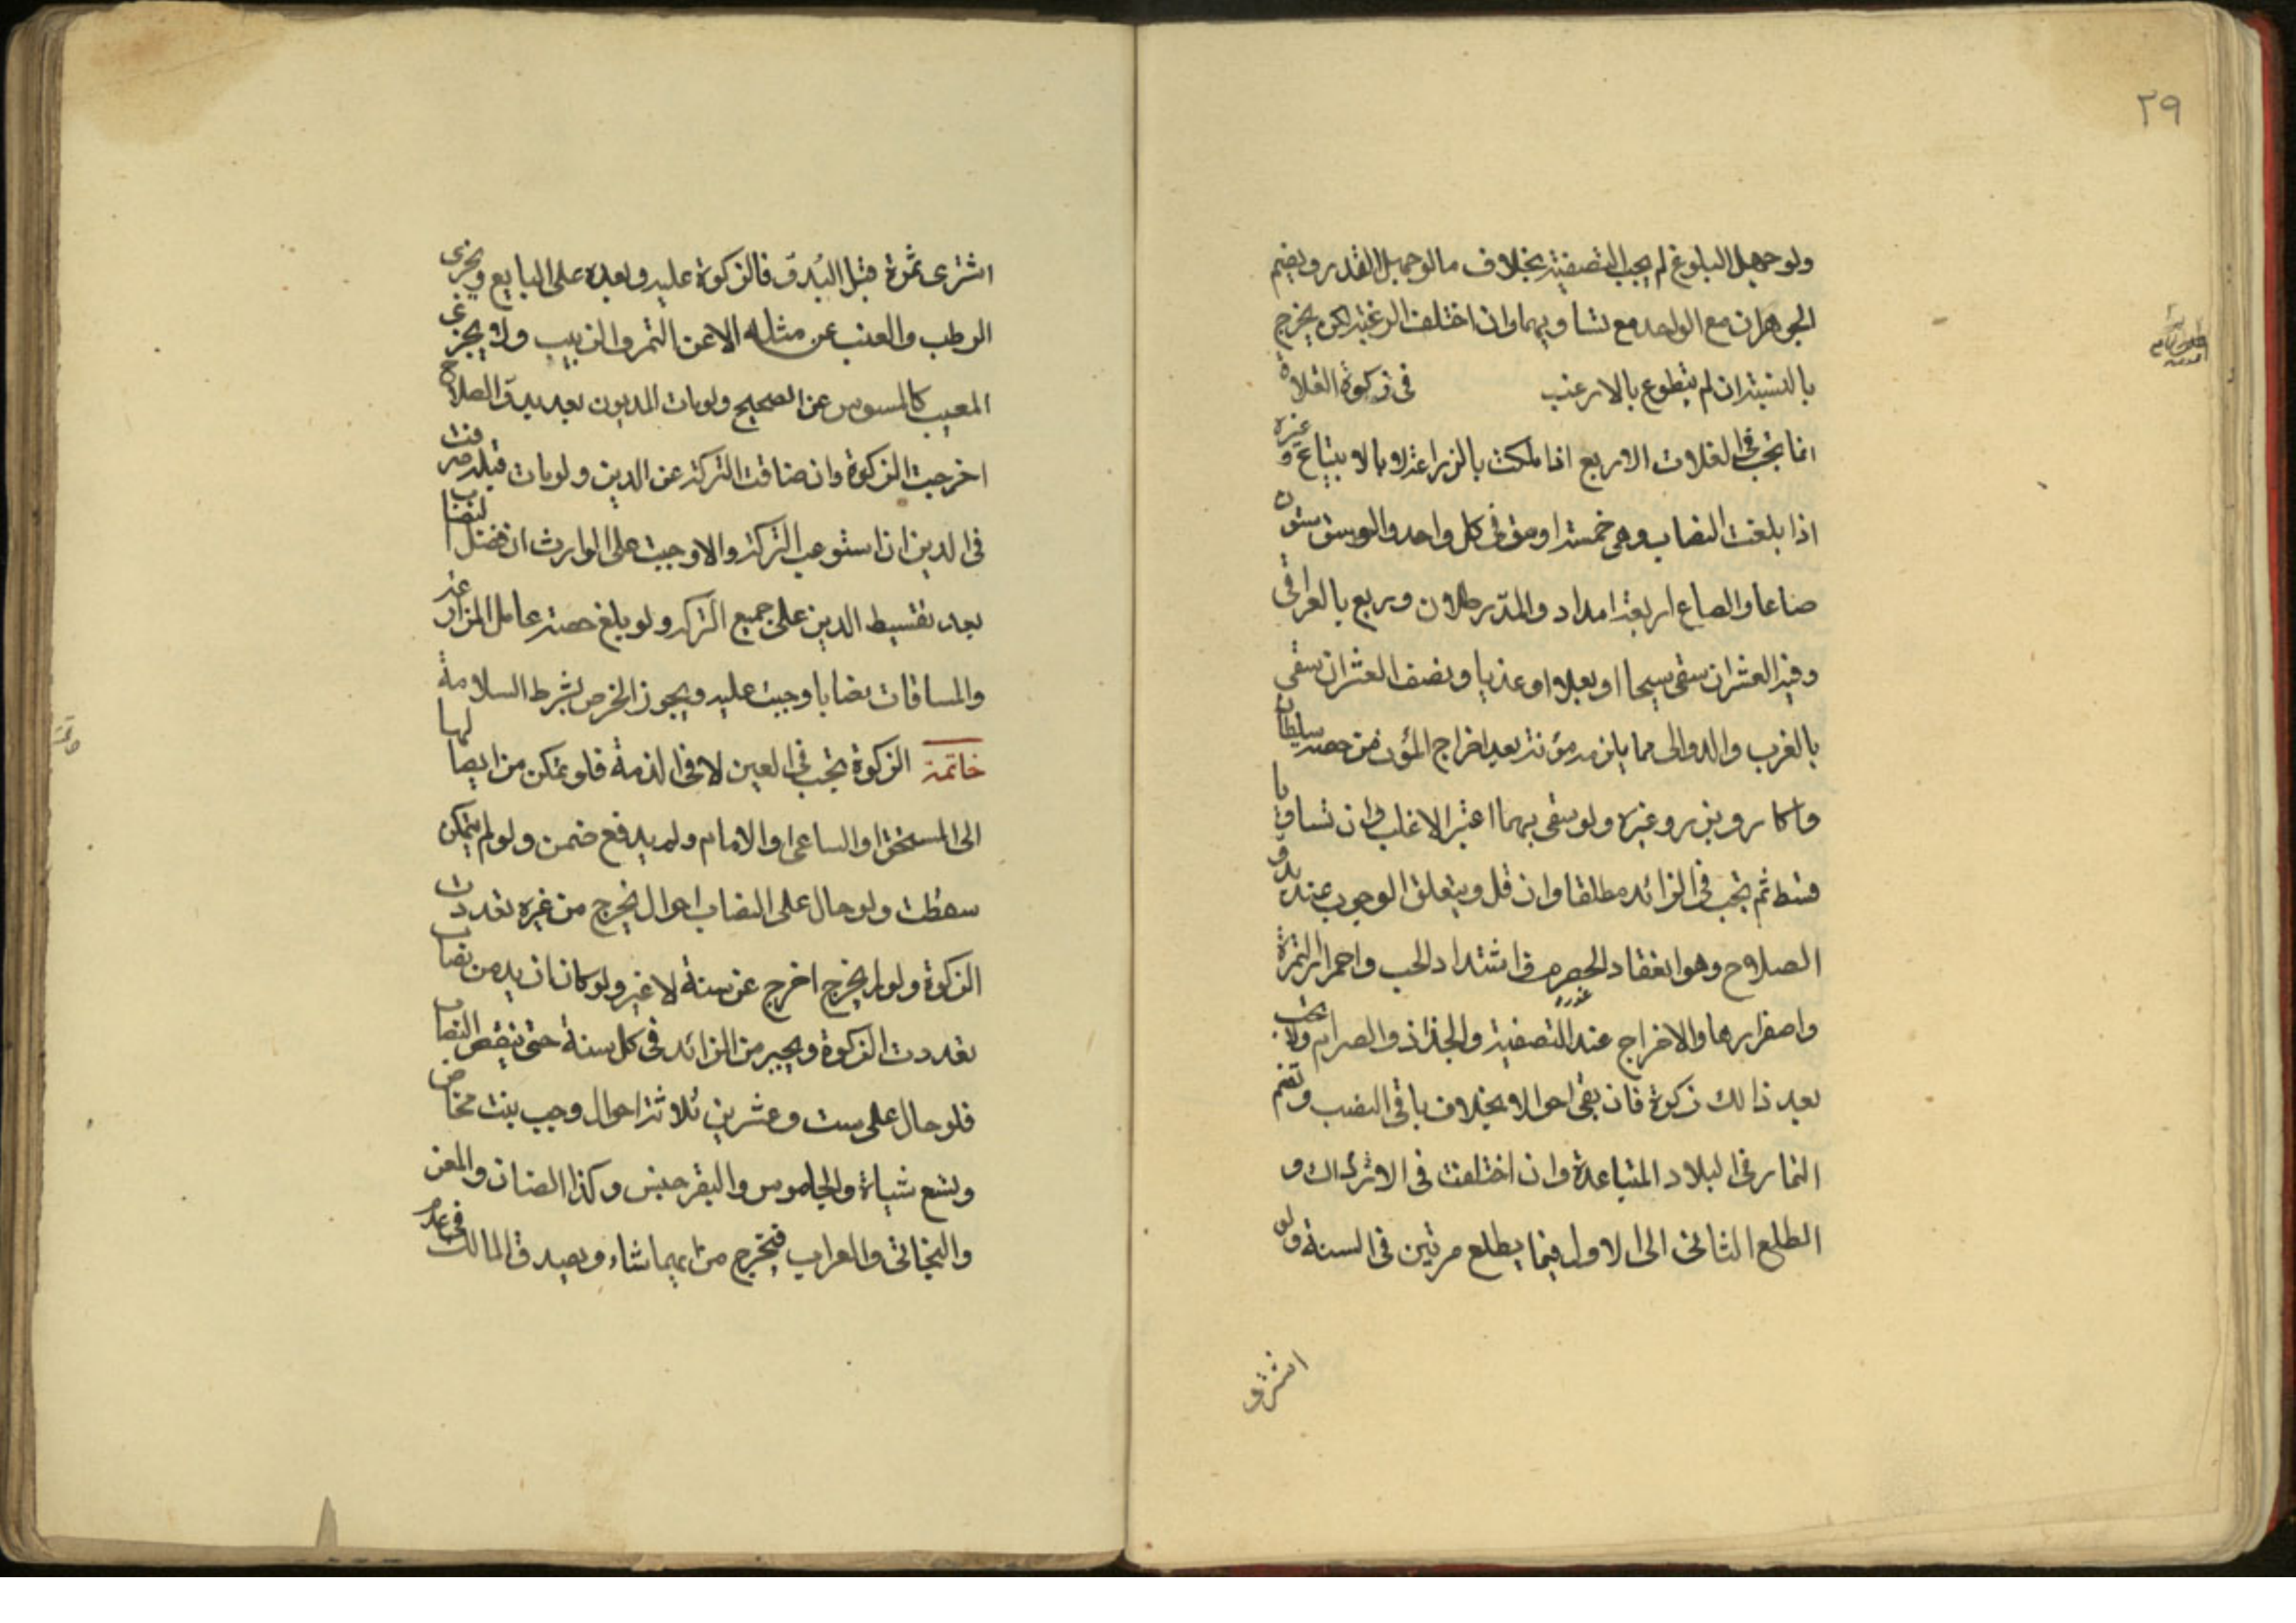 ٢٩
ولو جهل البلوغ لم يجب التصفية بخلاف ما لو جهل القدر ويضم
الجوهران مع الواحد مع تساويهما وان اختلف الرغبة لكن يخرج
بالنسبة ان لم يتطوع بالارغب في زكوة الغلاة
انما تجب في الغلات الاربع اذا ملكت بالزراعة لا بالابتياع وغيره
اذا بلغت النصاب وهي خمسة اوسق في كل واحد والوسق ستون
صاعا والصاع اربعة امداد والمد رطلان وربع بالعراقي
وفيه العشر ان سقى سيحا او بعلا او عذيا ونصف العشر ان سقى
بالغرب والدوالي مما يلزمه مؤنة بعد اخراج المؤن من حصة سلطان
واكار وبذر وغيره ولو سقى بهما اعتبر الاغلب وان تساويا
قسط ثم تجب في الزائد مطلقا وان قل ويتعلق الوجوب عند بدو
الصلاح وهو انعقاد الحصرم واشتداد الحب واحمرار الثمرة
واصفرارها والاخراج عند التصفية والجذاذ والصرام ولا تجب
بعد ذالك زكوة فان بقى احوالا بخلاف باقي النصب وتضم
الثمار في البلاد المتباعدة وان اختلفت في الادراك و
الطلع الثاني الى الاول فيما يطلع مرتين في السنة ولو
اشترى
اشترى ثمرة قبل البدو فالزكوة عليه وبعده على البايع ويجزى
الرطب والعنب عن مثله لا عن التمر والزبيب ولا يجزى
المعيب كالمسوس عن الصحيح ولو مات المديون بعد بدو الصلاح
اخرجت الزكوة وان ضاقت التركة عن الدين ولو مات قبله صرفت
في الدين ان استوعب التركة والا وجبت على الوارث ان فضل النصاب
بعد تقسيط الدين على جميع التركة ولو بلغ حصة عامل المزارعة
والمساقات نصابا وجبت عليه ويجوز الخرص بشرط السلامة
خاتمة الزكوة تجب في العين لا في الذمة فلو تمكن من ايصالها
الى المستحق او الساعي او الامام ولم يدفع ضمن ولو لم يتمكن
سقطت ولو حال على النصاب احوال يخرج من غيره تعددت
الزكوة ولو لم يخرج اخرج عن سنة لا غير ولو كان ازيد من نصاب
تعددت الزكوة ويجبر من الزائد في كل سنة حتى ينقص النصاب
فلو حال على ست وعشرين ثلاثة احوال وجب بنت مخاض
وتسع شياة والجاموس والبقر جنس وكذا الضان والمعز
والبخاتي والعراب فيخرج من ايهما شاء ويصدق المالك في عدم